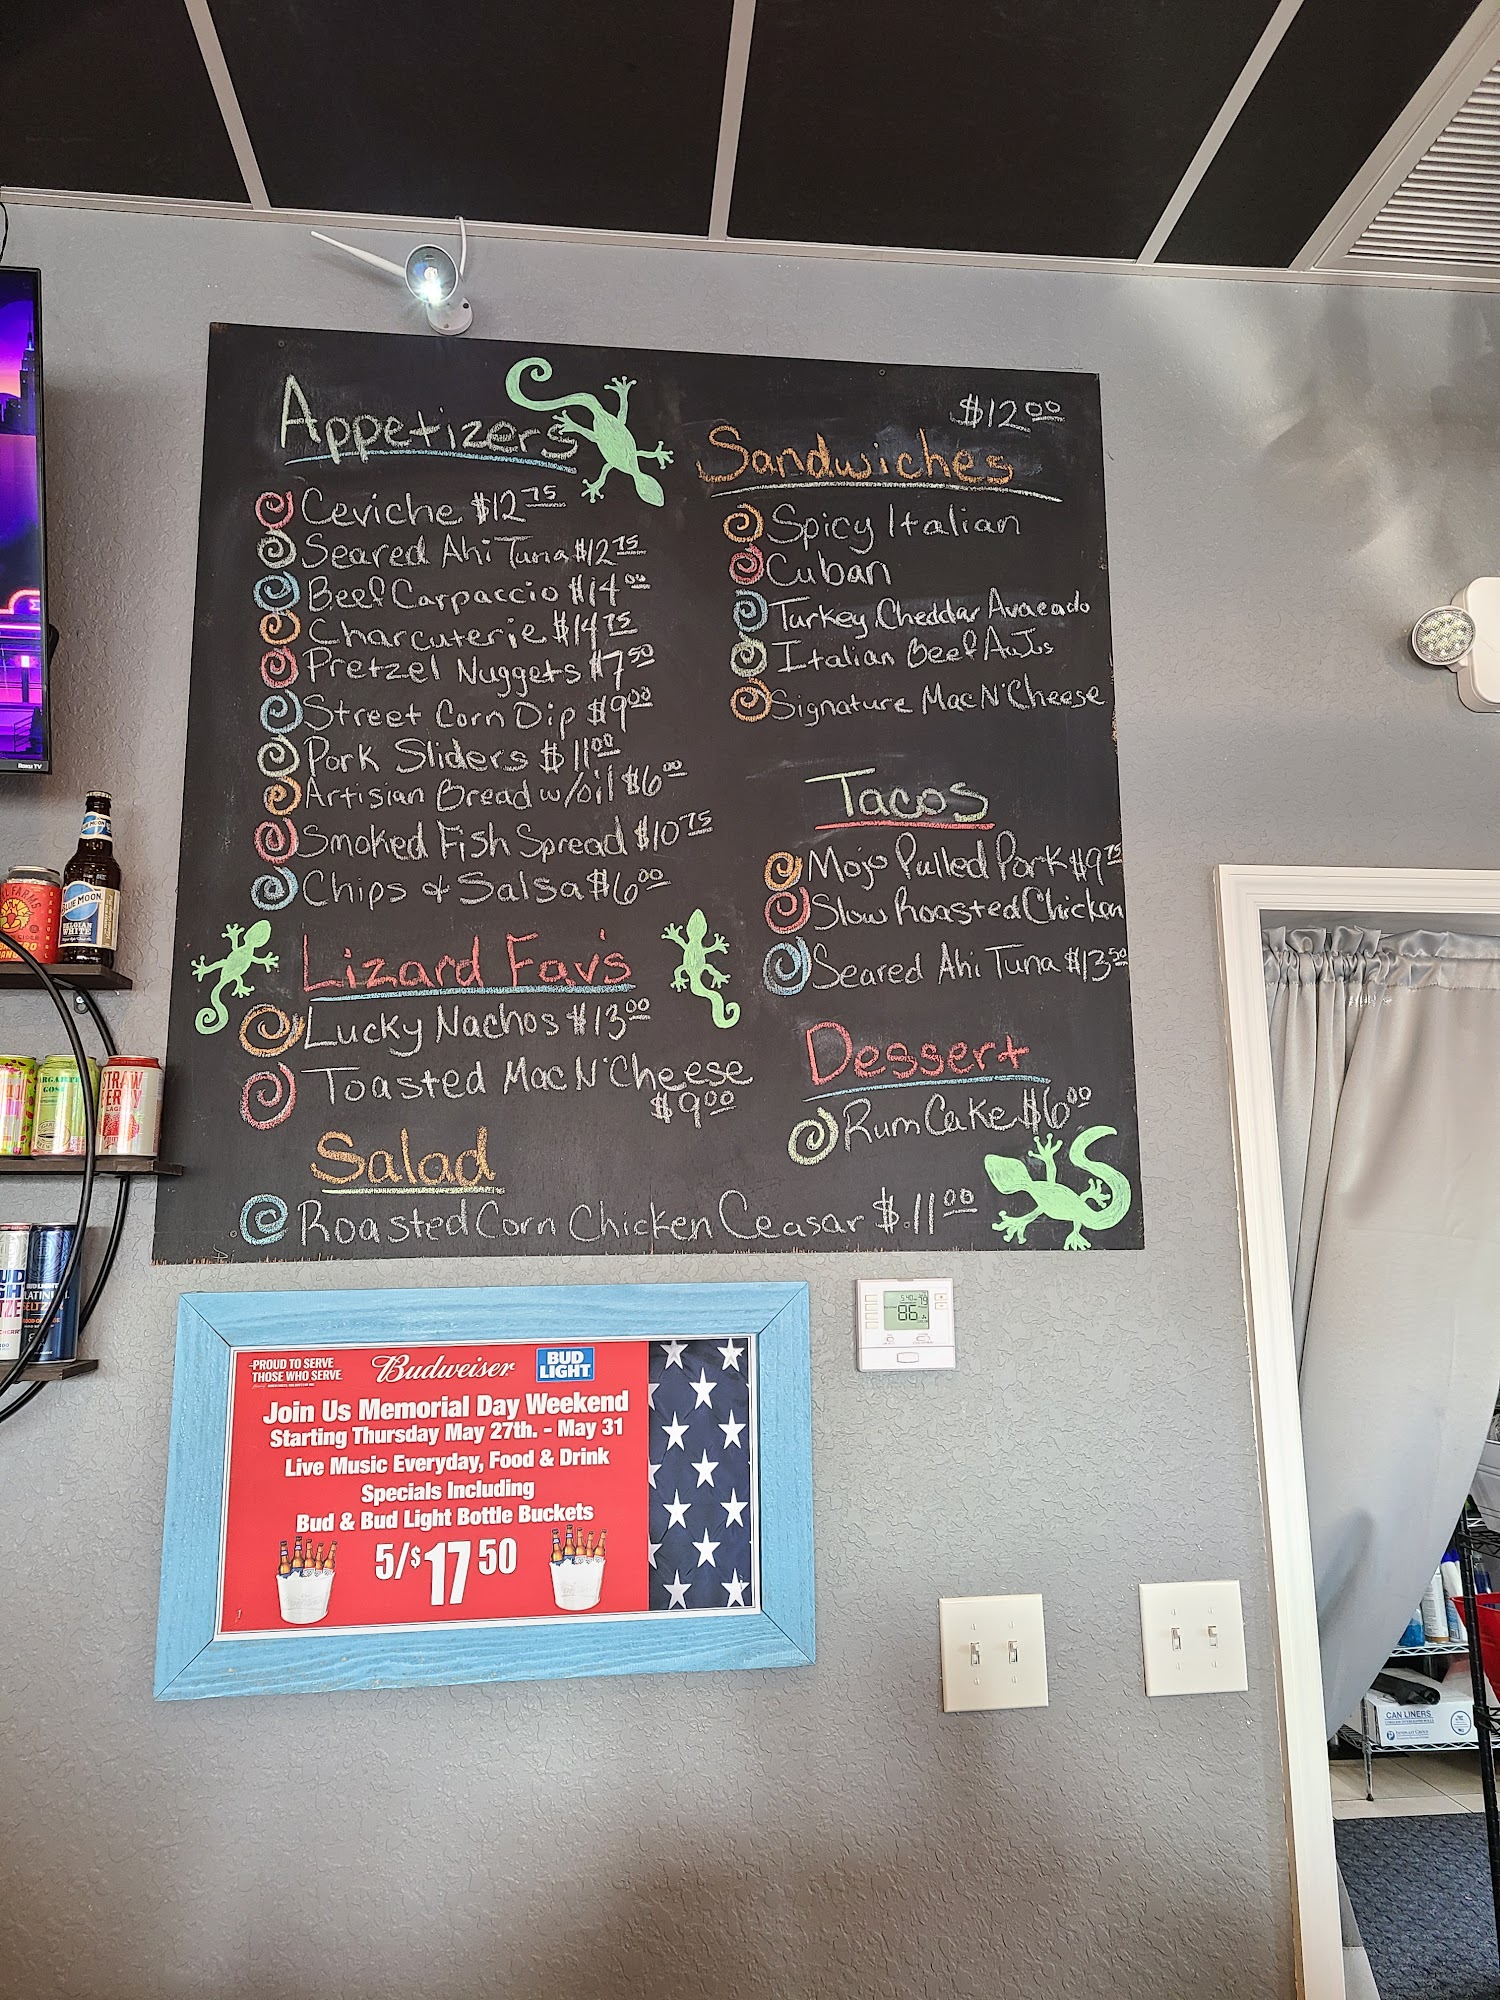 Appetizers
Ceviche $12.75
Seared Ahi Tuna $12.75
Beef Carpaccio $14.00
Charcuterie $14.75
Pretzel Nuggets $7.50
Street Corn Dip $9.00
Pork Sliders $11.00
Artisian Bread w/oil $6.00
Smoked Fish Spread $10.75
Chips & Salsa $6.00
Lizard Fav's
Lucky Nachos $13.00
Toasted Mac N' Cheese
$9.00
Salad
Roasted Corn Chicken Ceasar $.11.00
$12.00
Sandwiches
Spicy Italian
Cuban
Turkey Cheddar Avacado
Italian Beef AuJus
Signature Mac N' Cheese
Tacos
Mojo Pulled Pork $9.75
Slow Roasted Chicken
Seared Ahi Tuna $13.50
Dessert
Rum Cake $6.00
PROUD TO SERVE
THOSE WHO SERVE.
Budweiser
BUD
LIGHT
Join Us Memorial Day Weekend
Starting Thursday May 27th. - May 31
Live Music Everyday, Food & Drink
Specials Including
Bud & Bud Light Bottle Buckets
5/$17.50
86
Roku TV
BLUE MOON
BELGIAN
WHITE
CAN LINERS